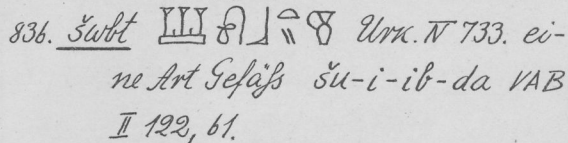 836. šwbt 𓆷𓍯𓃀𓏏𓏭 Urk. IV 733. ei-
ne Art Gefäß šu-i-ib-da VAB
II 122, 61.